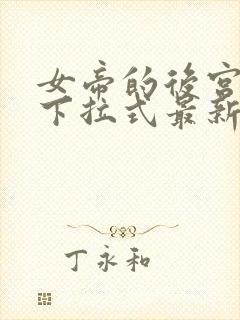 女帝的後宮
下拉式最新
丁永和